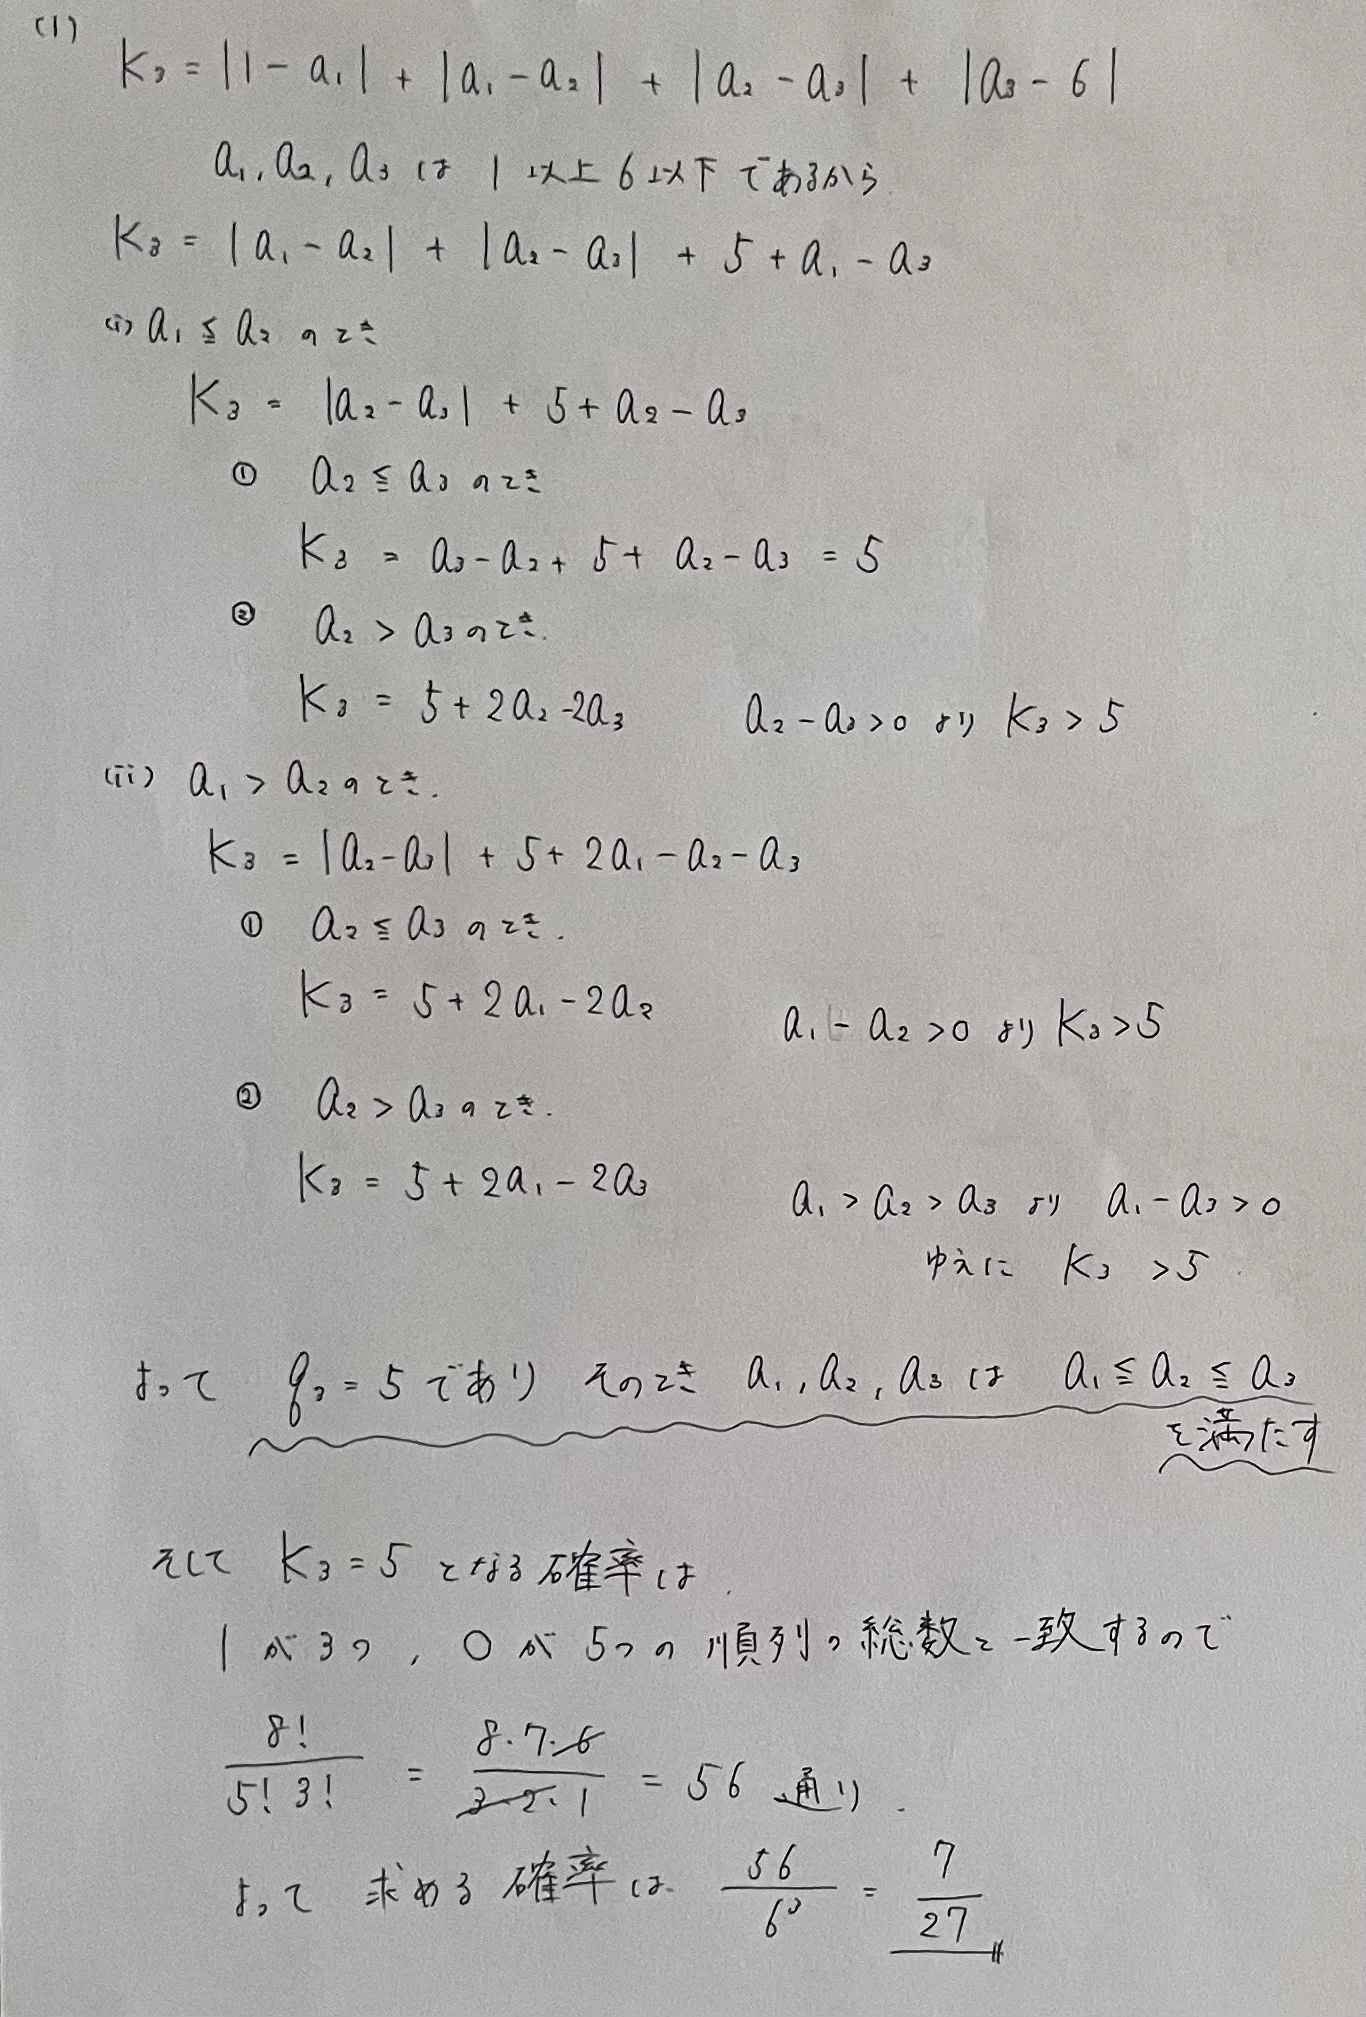 (1)
K₃ = |1 - a₁| + |a₁ - a₂| + |a₂ - a₃| + |a₃ - 6|
a₁, a₂, a₃ は 1 以上 6 以下 であるから
K₃ = |a₁ - a₂| + |a₂ - a₃| + 5 + a₁ - a₃
(i) a₁ ≦ a₂ のとき
K₃ = |a₂ - a₃| + 5 + a₂ - a₃
① a₂ ≦ a₃ のとき
K₃ = a₃ - a₂ + 5 + a₂ - a₃ = 5
② a₂ > a₃ のとき.
K₃ = 5 + 2a₂ - 2a₃ a₂ - a₃ > 0 より K₃ > 5
(ii) a₁ > a₂ のとき.
K₃ = |a₂ - a₃| + 5 + 2a₁ - a₂ - a₃
① a₂ ≦ a₃ のとき.
K₃ = 5 + 2a₁ - 2a₂ a₁ - a₂ > 0 より K₃ > 5
② a₂ > a₃ のとき.
K₃ = 5 + 2a₁ - 2a₃ a₁ > a₂ > a₃ より a₁ - a₃ > 0
ゆえに K₃ > 5
よって q₃ = 5 であり そのとき a₁, a₂, a₃ は a₁ ≦ a₂ ≦ a₃
を満たす
そして K₃ = 5 となる確率は
1 が 3つ , 0 が 5つの 順列の総数と一致するので
8!/5! 3! = 8・7・6/3・2・1 = 56 通り.
よって 求める 確率は 56/6³ = 7/27